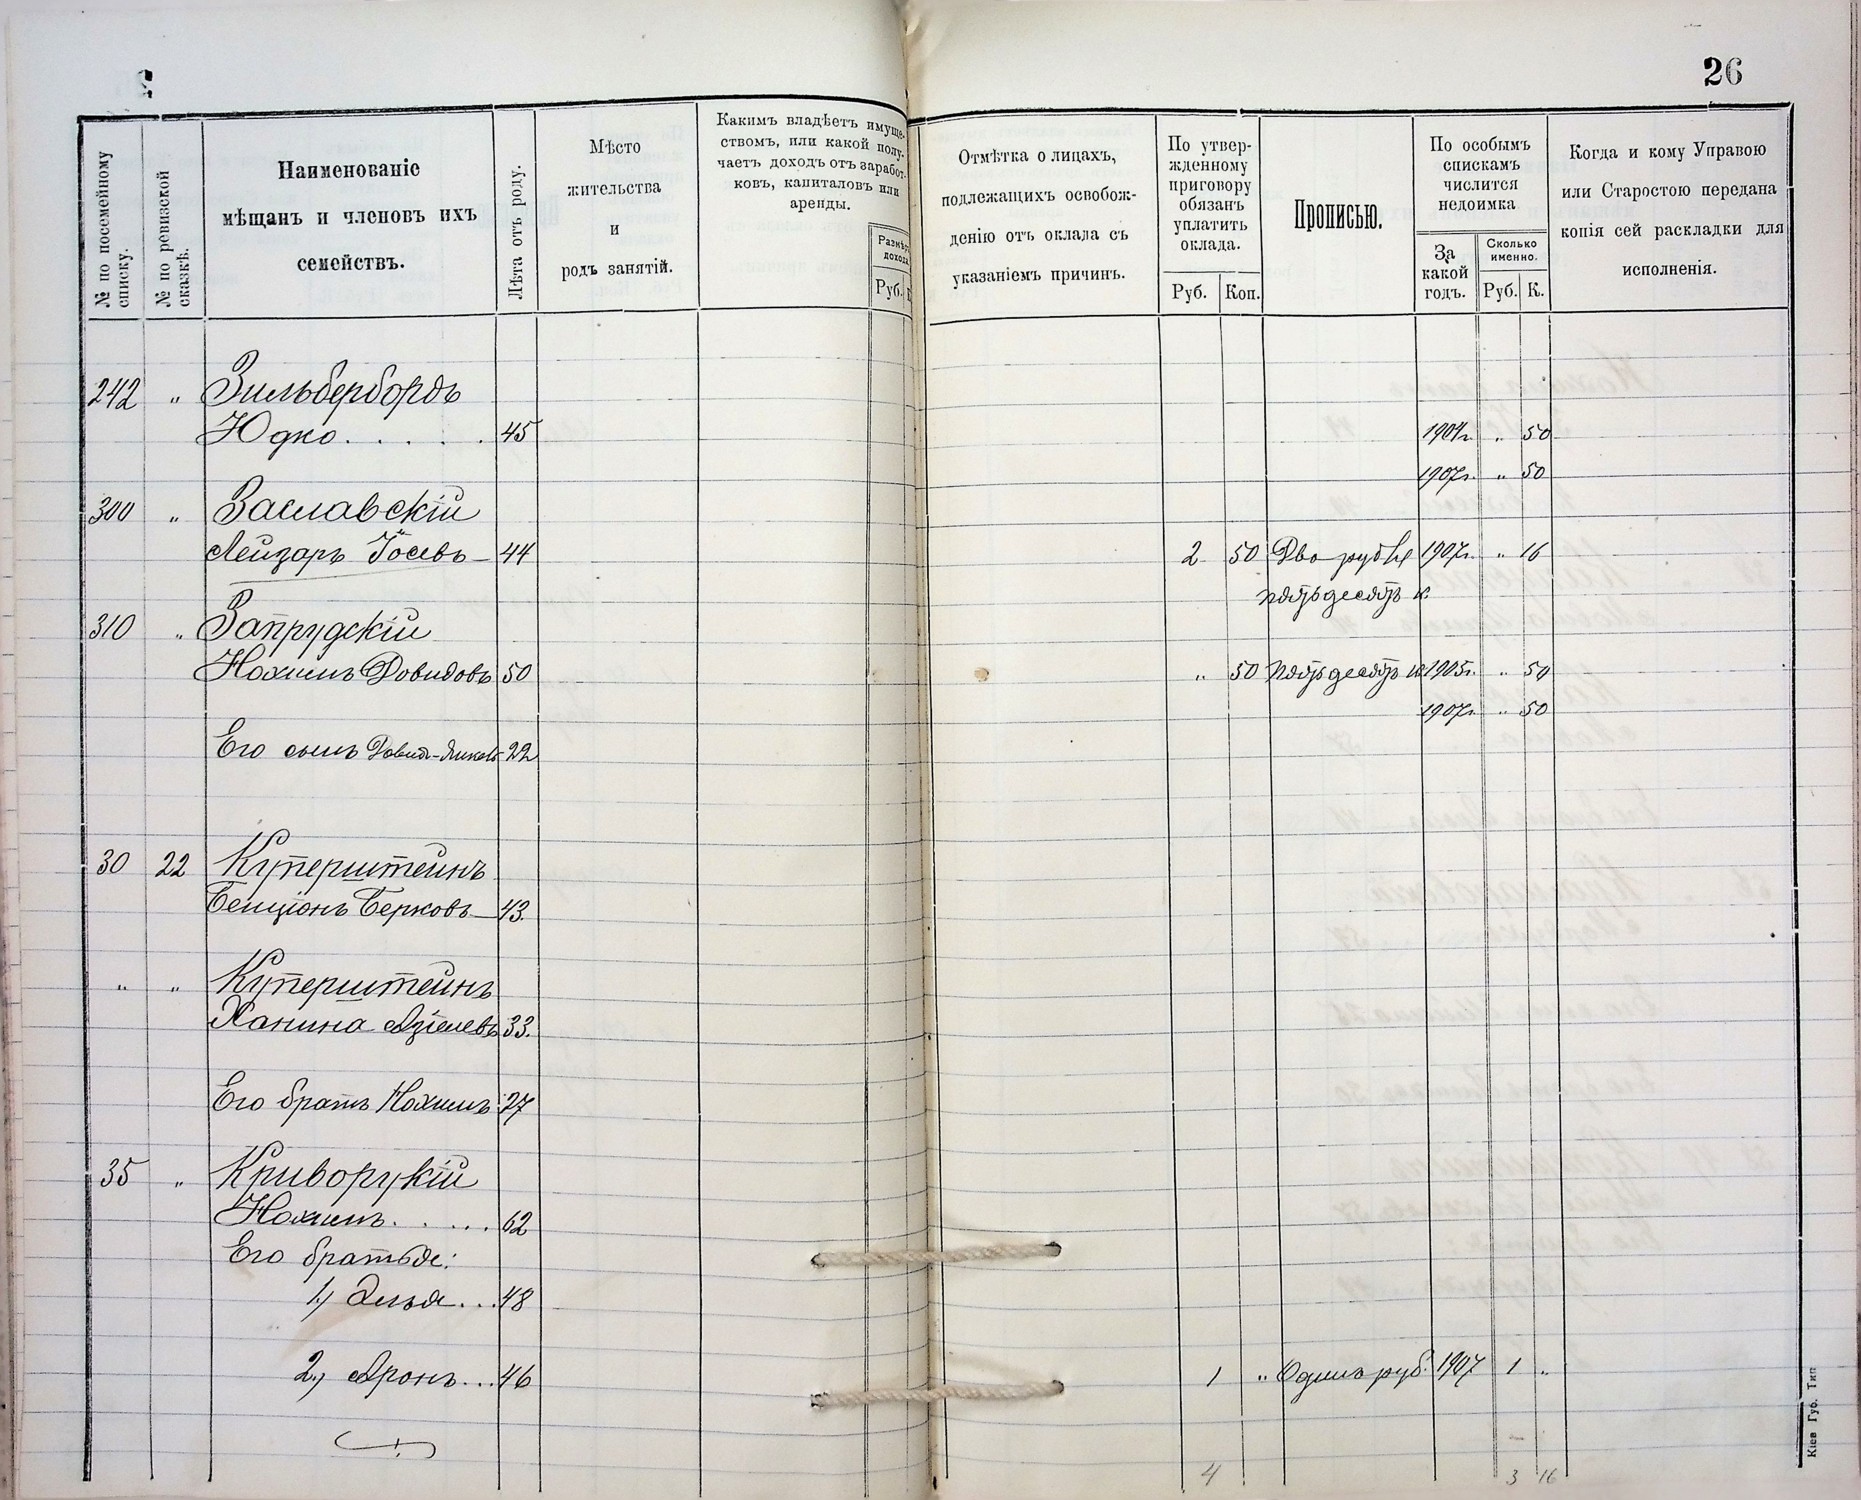 26
№ по посемейному списку.
№ по ревизской сказкѣ.
Наименованіе
мѣщанъ и членовъ ихъ
семействъ.
Лѣта отъ роду.
Мѣсто
жительства
и
родъ занятій.
Какимъ владѣетъ имуще-
ствомъ, или какой полу-
чаетъ доходъ отъ заработ-
ковъ, капиталовъ или
аренды.
Размѣръ
дохода
Руб.
Отмѣтка о лицахъ,
подлежащихъ освобож-
денію отъ оклада съ
указаніемъ причинъ.
По утвер-
жденному
приговору
обязанъ
уплатить
оклада.
Руб. Коп.
Прописью.
По особымъ
спискамъ
числится
недоимка
За
какой
годъ.
Сколько
именно.
Руб. К.
Когда и кому Управою
или Старостою передана
копія сей раскладки для
исполненія.
242 " Зильбербордъ
Юдко . . . . . 45 1904г. " 50
1907г. " 50
300 " Заславскій
Лейзоръ Іосевъ — 44 2 50 Два рубля 1907г. " 16
пятьдесятъ к.
310 " Запрудскій
Нохимъ Довидовъ 50 " 50 пятьдесятъ к 1905г. " 50
1907г. " 50
Его сынъ Довид-Янкель 22
30 22 Куперштейнъ
Бенціонъ Берковъ — 43.
" " Куперштейнъ
Ханина Азіелевъ 33.
Его братъ Нохимъ 27
35 " Криворукій
Нохимъ . . . . . 62
Его братья:
1.) Элья . . . 48
2.) Аронъ . . . 46 1 " Одинъ руб. 1907 1 "
4 3 16
Кіев Губ. Тип